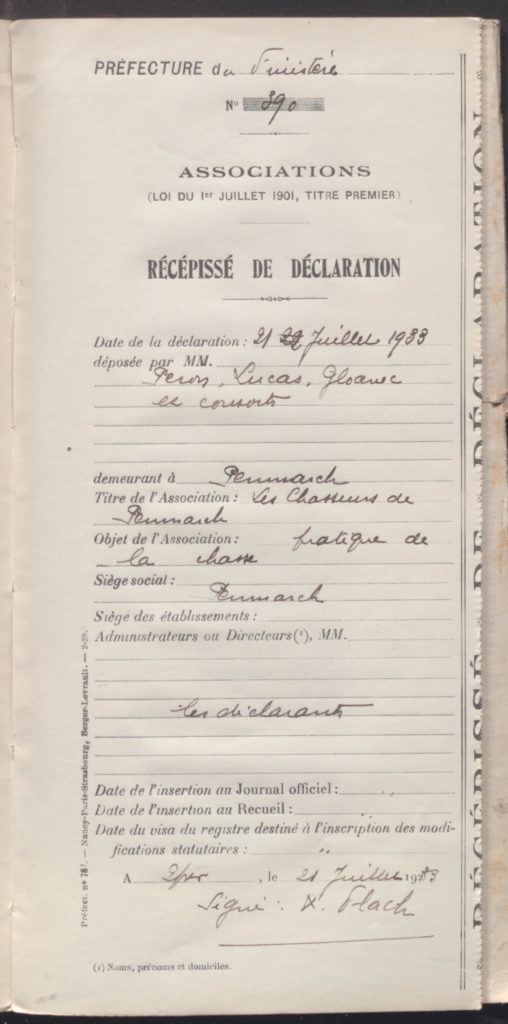 PRÉFECTURE du Finistère
N° 390
ASSOCIATIONS
(LOI DU 1er JUILLET 1901, TITRE PREMIER)
RÉCÉPISSÉ DE DÉCLARATION
Date de la déclaration : 21 Juillet 1933
déposée par MM.
Peron, Lucas, Gloanec
et consorts
demeurant à Penmarch
Titre de l'Association : Les Chasseurs de
Penmarch
Objet de l'Association : pratique de
la chasse
Siège social :
Penmarch
Siège des établissements :
Administrateurs ou Directeurs (1), MM.
les déclarants
Date de l'insertion au Journal officiel : ,,
Date de l'insertion au Recueil : ,,
Date du visa du registre destiné à l'inscription des modi-
fications statutaires : ,,
A Qper, le 21 Juillet 1933
Signé : X. Flach
(1) Noms, prénoms et domiciles.
Préfect. n° 787. — Nancy-Paris-Strasbourg, Berger-Levrault. — 2-28.
RÉCÉPISSÉ DE DÉCLARATION